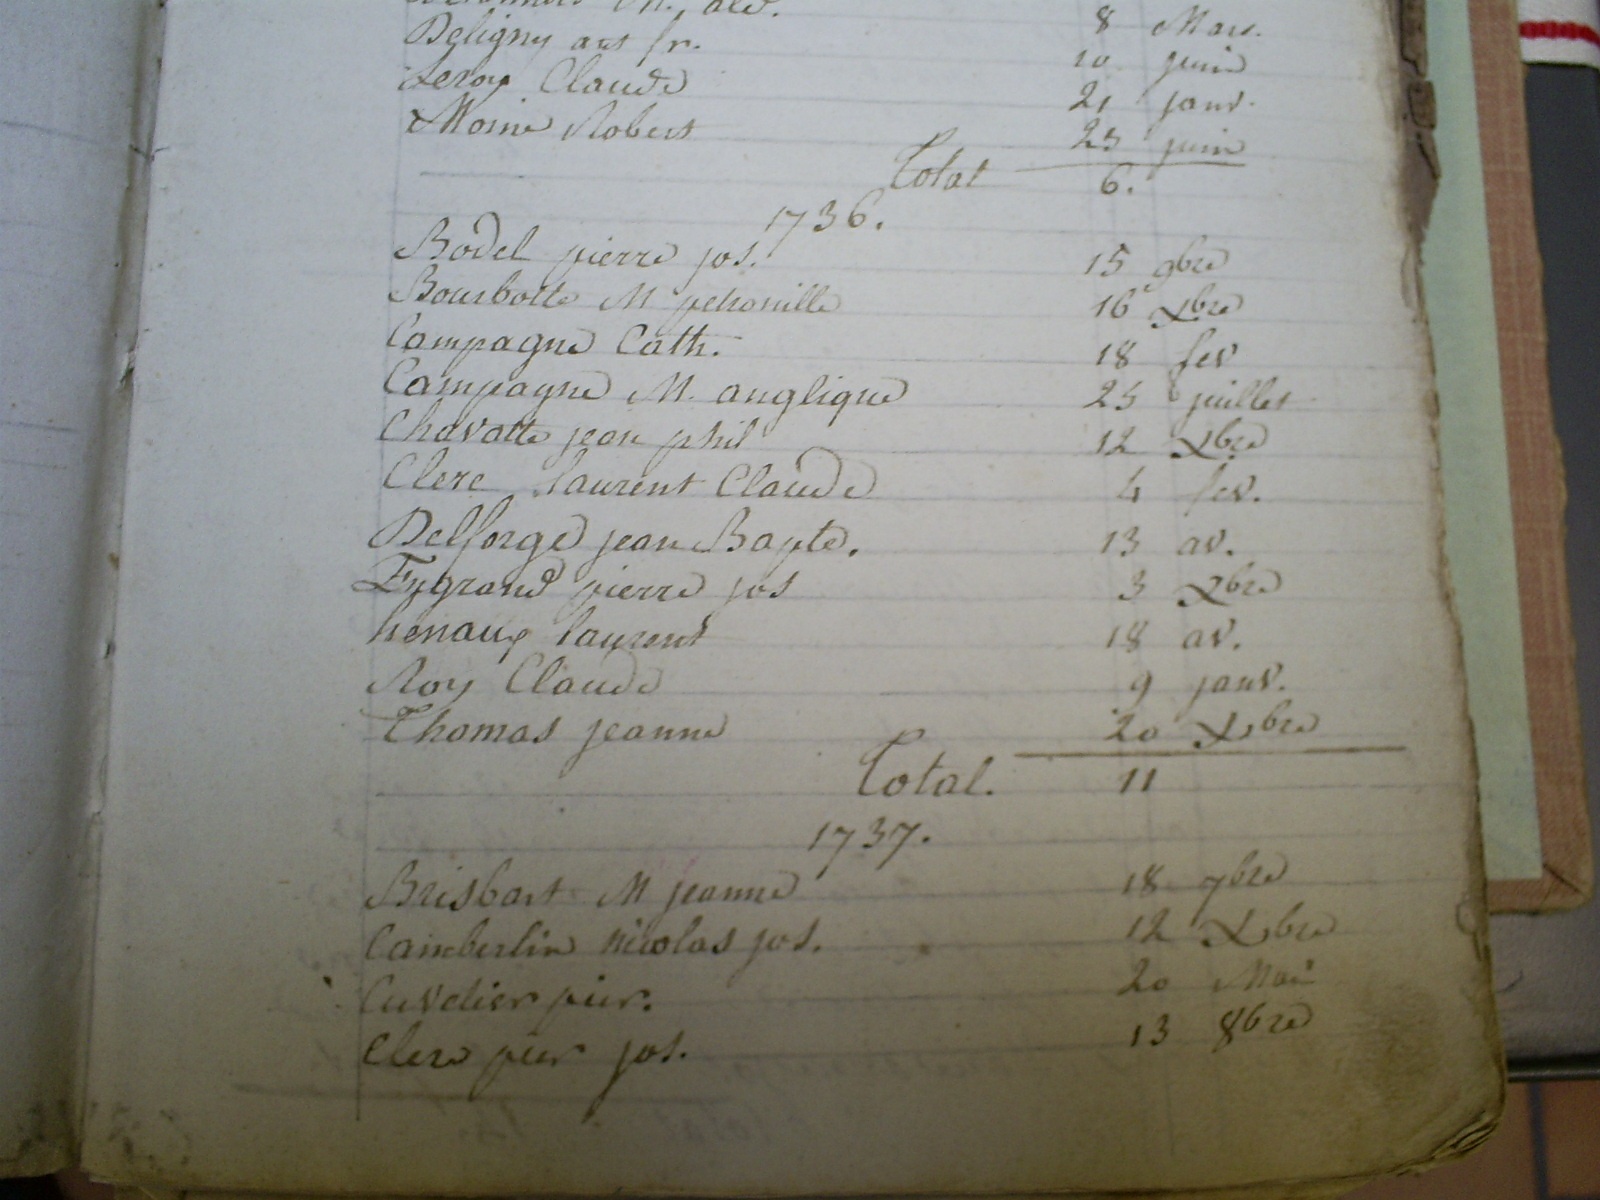 8 Mars.
Deligny ant fr. 10 juin
Leroy Claude 21 janv.
Moine Robert 25 juin
Total 6.
1736.
Bodel pierre jos. 15 9bre
Bourbotte M petronille 16 Xbre
Campagne Cath. 18 fev
Campagne M. anglique 25 juillet
Chavatte jean phil 12 Xbre
Clerc laurent Claude 4 fev.
Delforge jean Bapte. 13 av.
Engrand pierre jos 3 Xbre
henaux laurent 18 av.
Roy Claude 9 janv.
Thomas jeanne 20 Xbre
Total. 11
1737.
Brisbart M jeanne 18 7bre
Camberlin nicolas jos. 12 Xbre
Cuvelier pier. 20 Mai
Clerc pier jos. 13 8bre